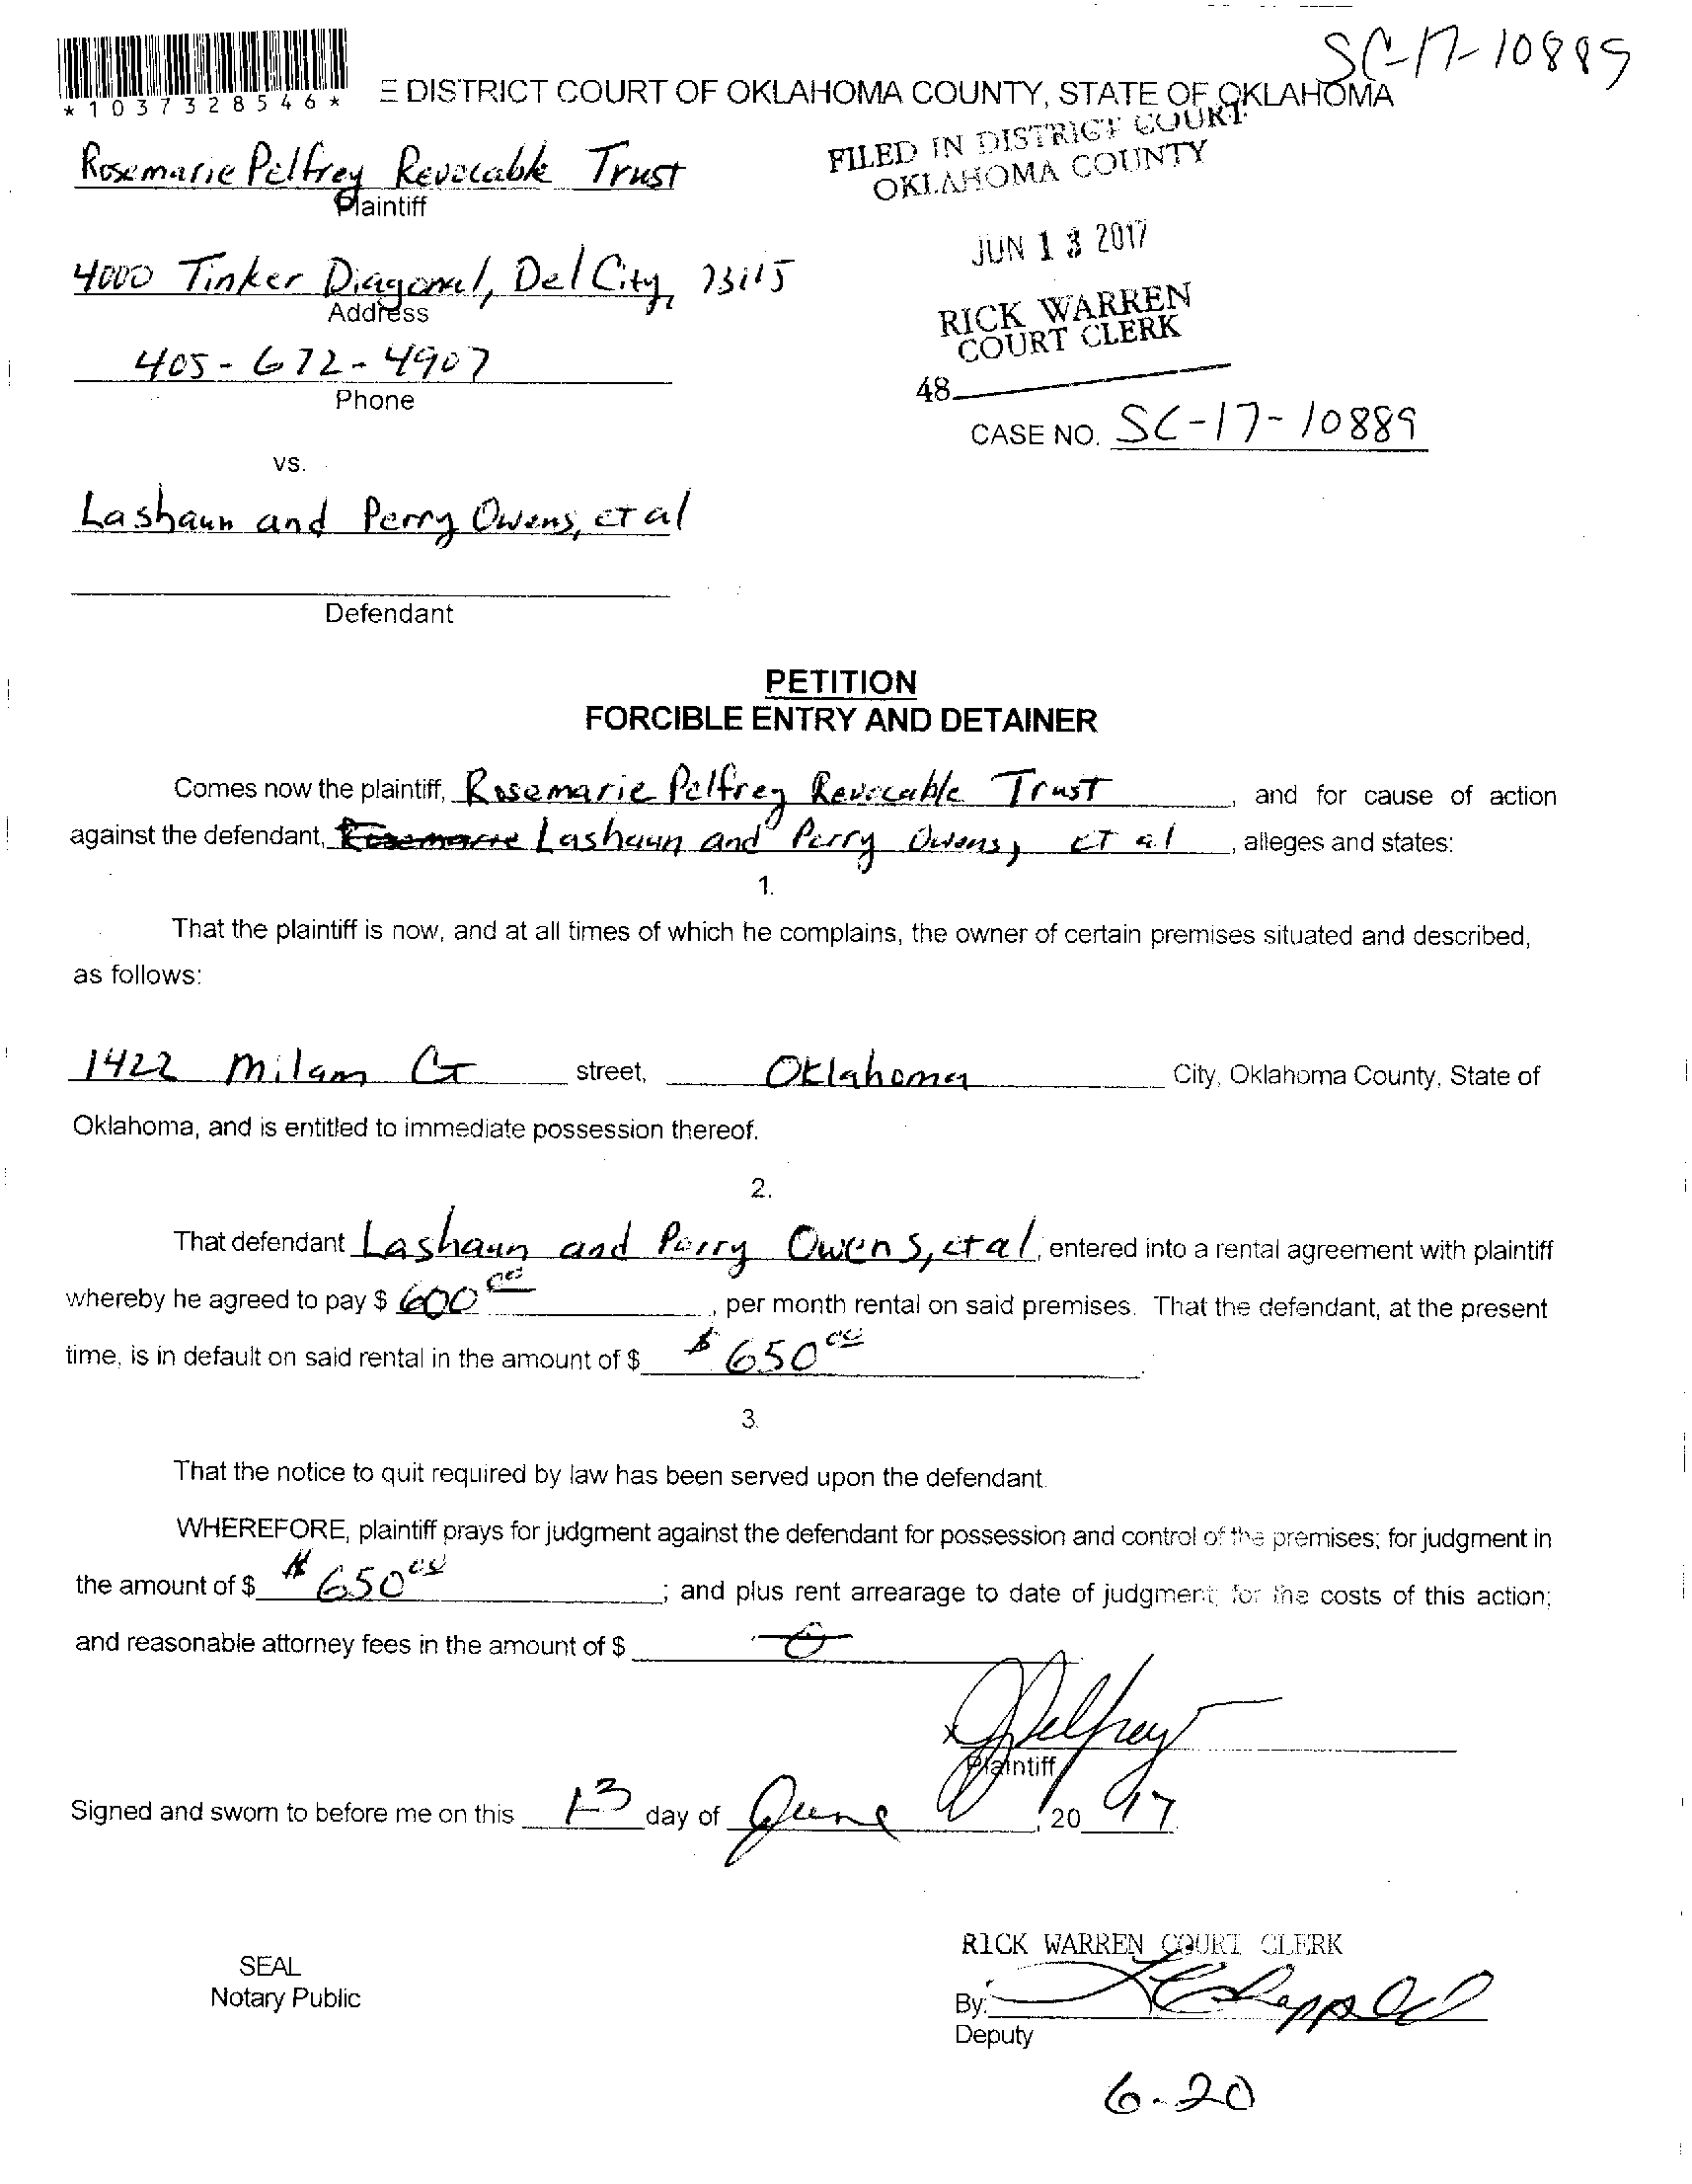 SC-17-10889
*1037328546*
E DISTRICT COURT OF OKLAHOMA COUNTY, STATE OF OKLAHOMA
FILED IN DISTRICT COURT
OKLAHOMA COUNTY
Rosemarie Pelfrey Revocable Trust
Plaintiff
JUN 13 2017
4000 Tinker Diagonal, Del City, 73115
Address
RICK WARREN
COURT CLERK
405-672-4907
Phone
48
CASE NO. SC-17-10889
vs.
Lashaun and Perry Owens, et al
Defendant
PETITION
FORCIBLE ENTRY AND DETAINER
Comes now the plaintiff, Rosemarie Pelfrey Revocable Trust, and for cause of action
against the defendant, Rosemarie Lashaun and Perry Owens, et al, alleges and states:
1.
That the plaintiff is now, and at all times of which he complains, the owner of certain premises situated and described,
as follows:
1422 Milam Ct street, Oklahoma City, Oklahoma County, State of
Oklahoma, and is entitled to immediate possession thereof.
2.
That defendant Lashaun and Perry Owens, et al, entered into a rental agreement with plaintiff
whereby he agreed to pay $ 600 00, per month rental on said premises. That the defendant, at the present
time, is in default on said rental in the amount of $ $650 00.
3.
That the notice to quit required by law has been served upon the defendant.
WHEREFORE, plaintiff prays for judgment against the defendant for possession and control of the premises; for judgment in
the amount of $ $650 00; and plus rent arrearage to date of judgment; for the costs of this action;
and reasonable attorney fees in the amount of $ 0
x Pelfrey
Plaintiff
Signed and sworn to before me on this 13 day of June, 20 17.
RICK WARREN COURT CLERK
SEAL
Notary Public
By:
Deputy
6-20